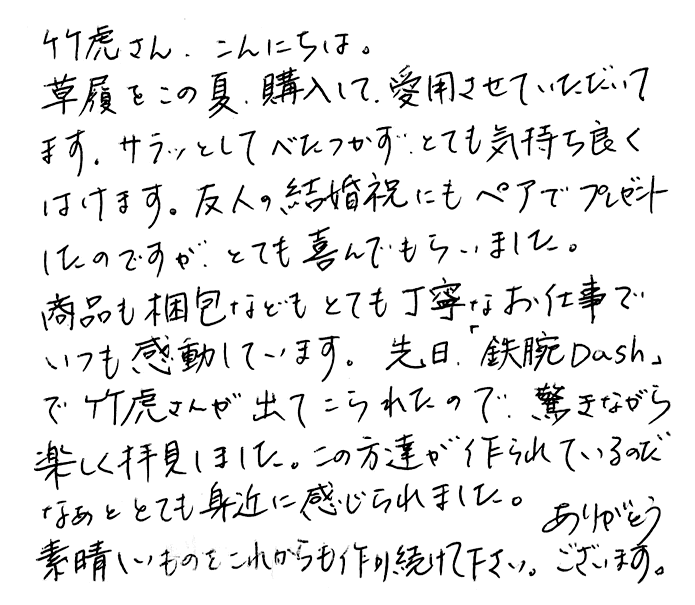 竹虎さん、こんにちは。
草履をこの夏、購入して、愛用させていただいて
ます。サラッとしてべたつかず、とても気持ち良く
はけます。友人の結婚祝にもペアでプレゼント
したのですが、とても喜んでもらいました。
商品も梱包などもとても丁寧なお仕事で
いつも感動しています。先日、「鉄腕Dash」
で竹虎さんが出てこられたので、驚きながら
楽しく拝見しました。この方達が作られているのだ
なぁととても身近に感じられました。
素晴しいものをこれからも作り続けて下さい。
ありがとう
ございます。